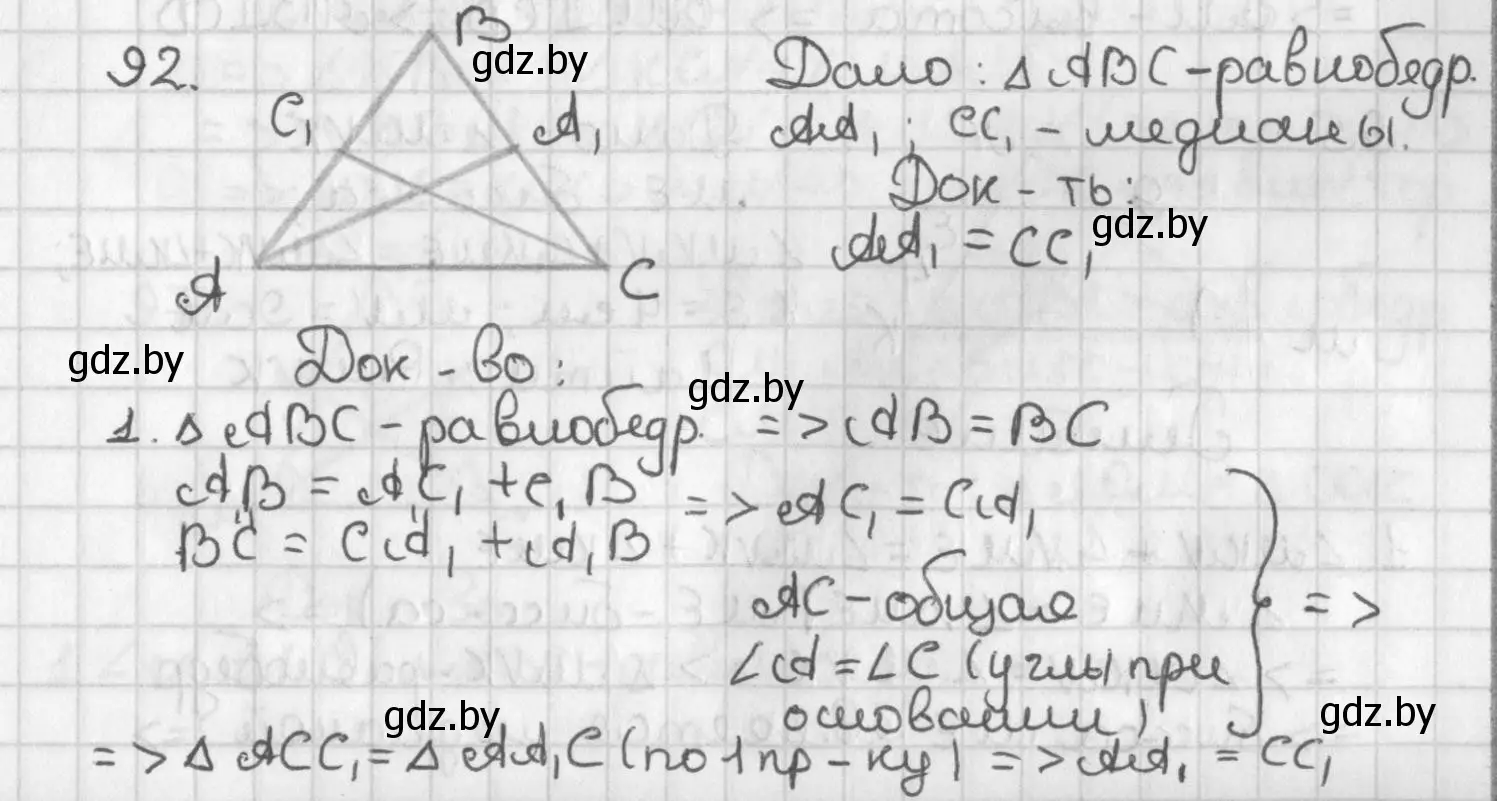 92.
B
C₁
A₁
A
C
gdz.by
Дано: △ABC - равнобедр.
AA₁; CC₁ - медианы.
Док-ть:
AA₁ = CC₁
gdz.by
gdz.by
Док-во:
gdz.by
1. △ABC - равнобедр. => AB = BC
AB = AC₁ + C₁B
BC = CA₁ + A₁B
=> AC₁ = CA₁
AC - общая
∠A = ∠C (углы при
основании)
} =>
gdz.by
gdz.by
=> △ACC₁ = △AA₁C (по 1 пр-ку) => AA₁ = CC₁